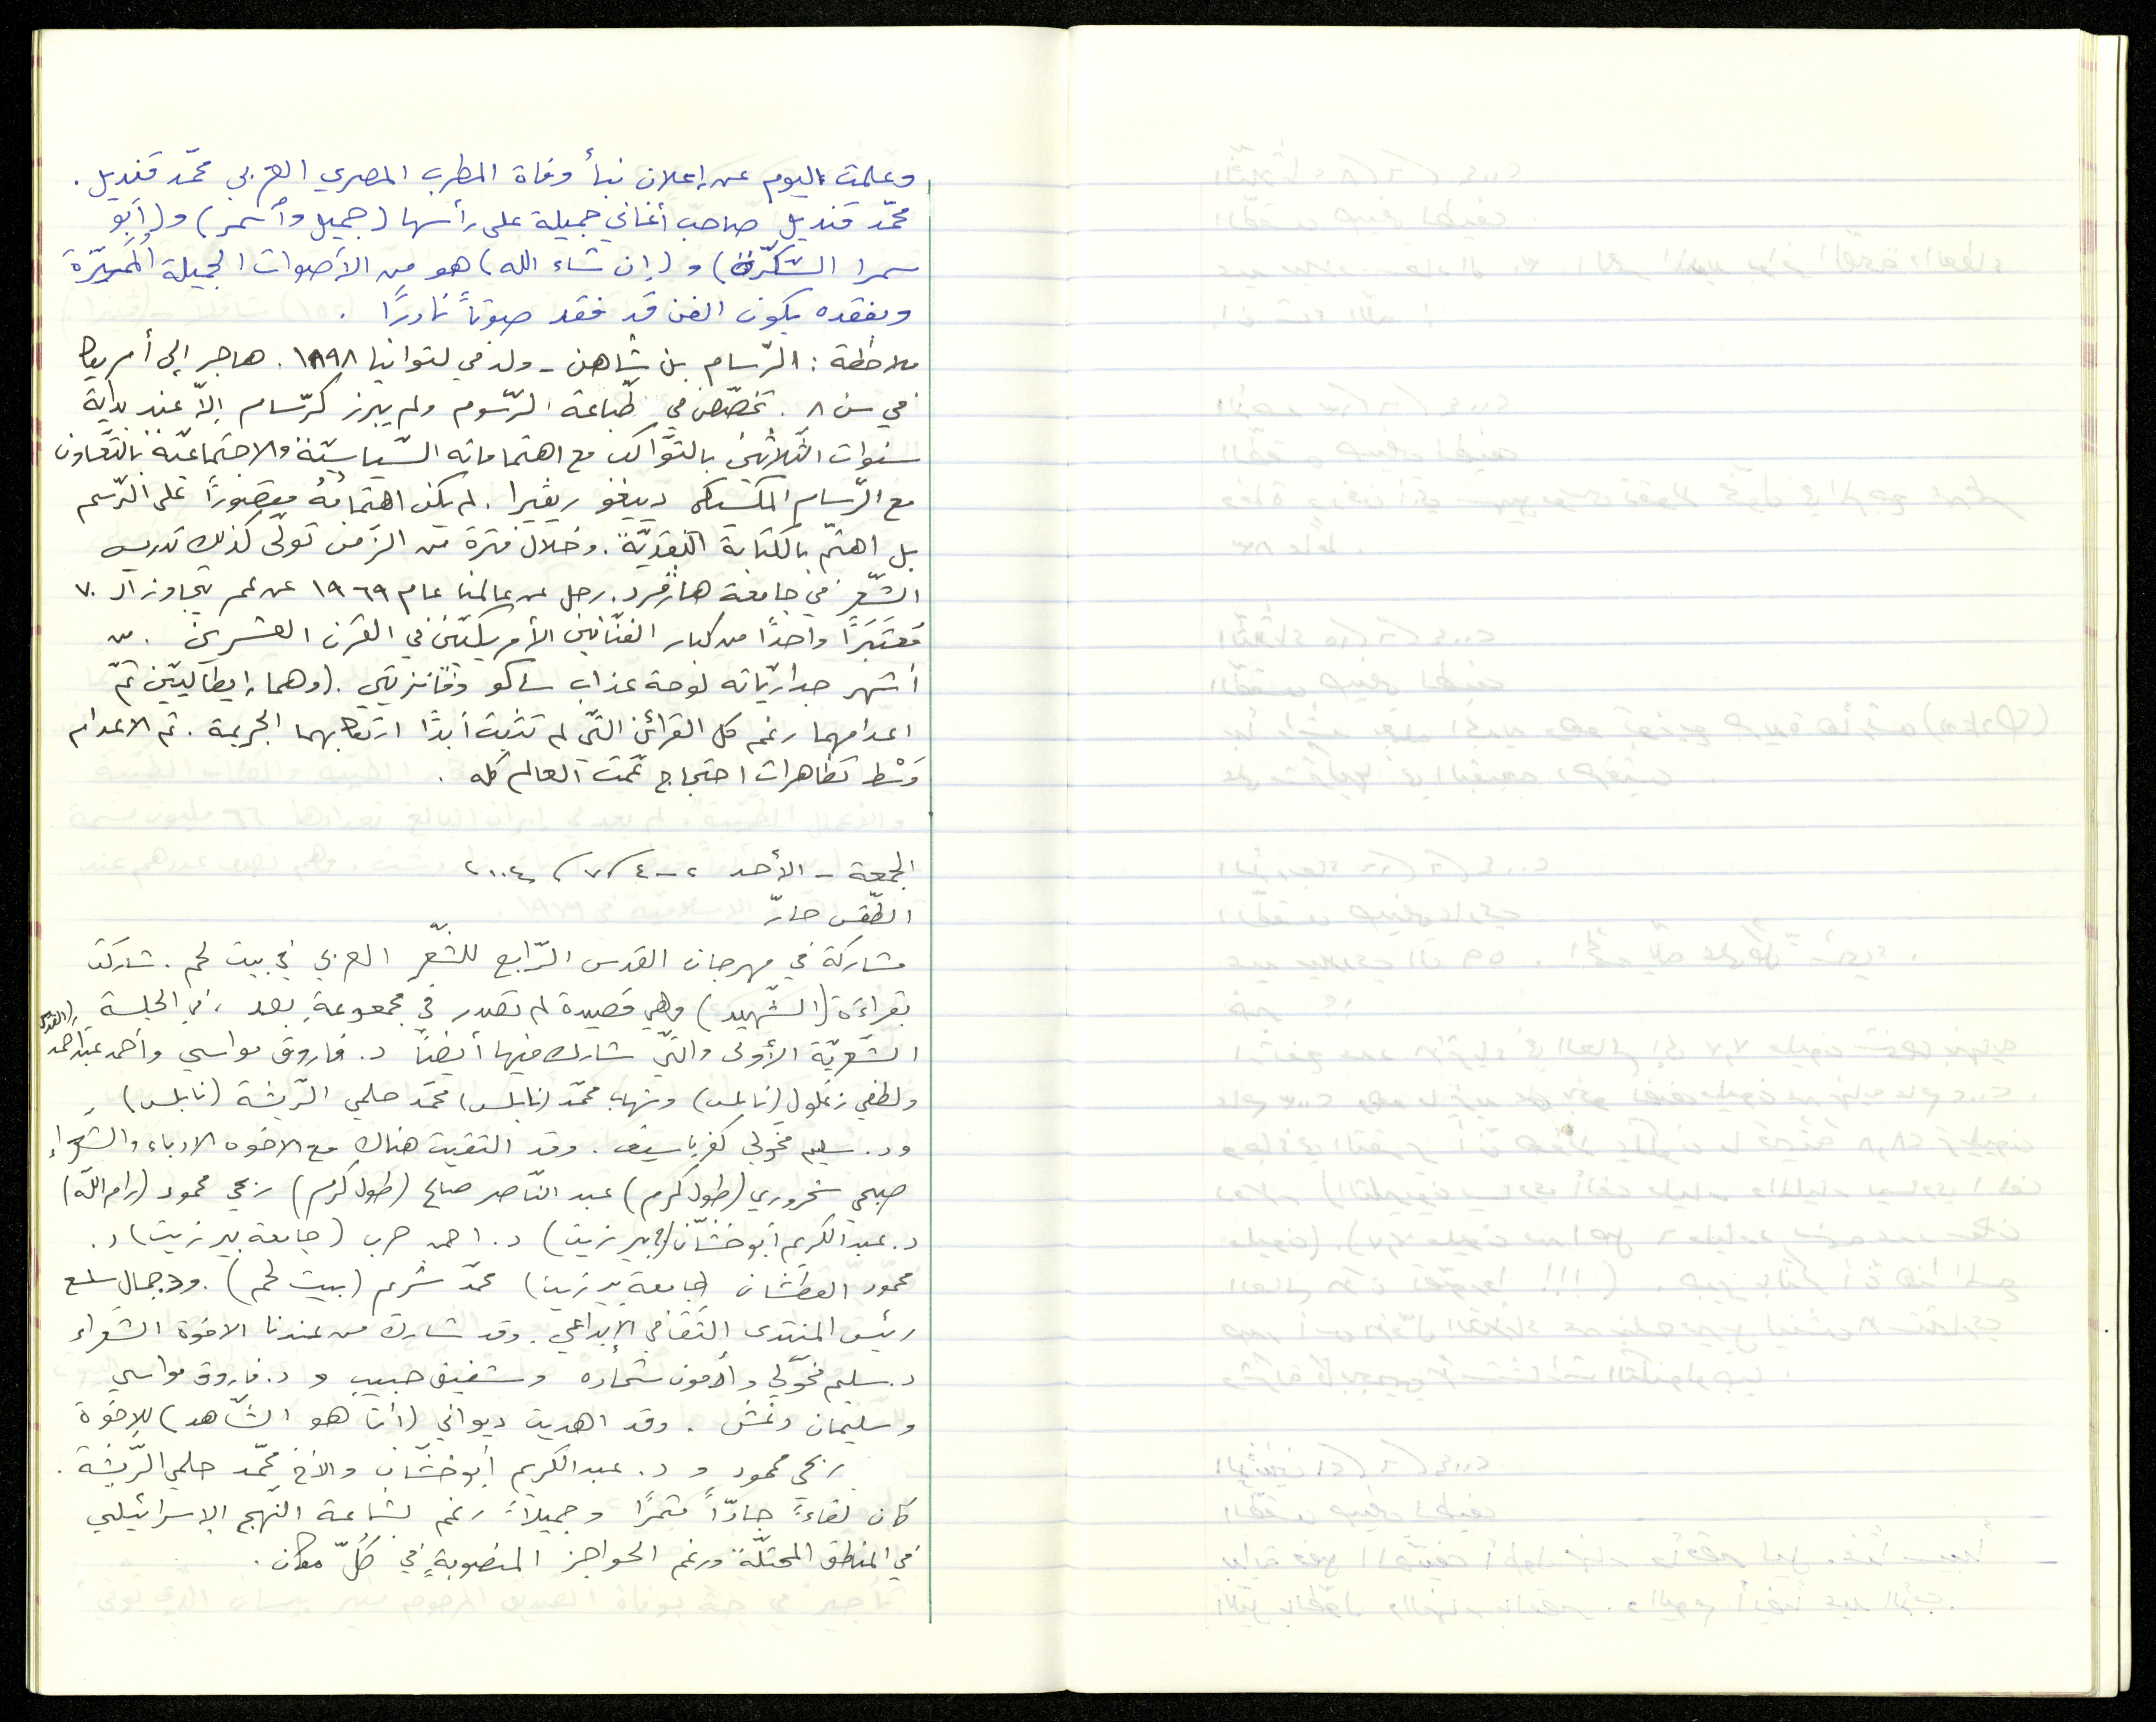 وعلمت اليوم عن إعلان نبأ وفاة المطرب المصري العربي محمّد قنديل.
محمّد قنديل صاحب أغاني جميلة على رأسها (جميل وأسمر) و(أبو
سمرا السّكّرة) و (إن شاء الله) هو من الأصوات الجميلة المُميّزة
وبفقده يكون الفن قد فقد صوتاً نادرًا .
ملاحظة : الرّسام بن شاهن - ولد في لتوانيا ١٨٩٨. هاجر إلى أمريكا
في سن ٨ . تخصّص في طباعة الرّسوم ولم يبرز كرّسام إلاّ عند بداية
سنوات الثّلاثين بالتّواكب مع اهتماماته السّياسيّة والاجتماعيّة بالتّعاون
مع الرّسام المكسيكي دييغو ريڤيرا. لم يكن اهتمامُهُ مقصورًا على الرّسم
بل اهتمّ بالكتابة النّقديّة. وخلال فترة من الزّمن تولّى كذلك تدريس
الشّعر في جامعة هارڤرد. رحل عن عالمنا عام ١٩٦٩ عن عمر تجاوز الـ ٧٠
مُعتَبَرًا واحدًا من كبار الفنّانين الأمريكيّين في القرن العشرين . من
أشهر جداريّاته لوحة عذاب ساكو وڤانزيتي. (وهما إيطاليّين تمّ
اعدامهما رغم كل القرائن التّي لم تثبت أبدًا ارتكابهما الجريمة. تم الاعدام
وَسْط تظاهرات احتجاج عمّت العالم كله .
الجمعة - الأحد ٢-٤/٧/٢٠٠٤
الطّقس حارّ
مشاركة في مهرجان القدس الرّابع للشّعر العربي في بيت لحم. شاركت
بقراءة (الشّهيد) وهي قصيدة لم تصدر في مجموعةٍ بعد، في الجلسة
الشّعريّة الأولى والتّي شارك فيها أيضًا د. فاروق مواسي وأحمد عبد احمد (القدس)
ولطفي زغلول (نابلس) وشهاب محمّد (نابلس) محمّد حلمي الرّيشة (نابلس)
ود. سليم مخولي كفرياسيف. وقد التقيت هناك مع الاخوه الادباء والشعراء
صبحي شحروري (طولكرم) عبد النّاصر صالح (طولكرم) ربحي محمود (رام اللّه)
د. عبد الكريم أبو خشّان (بير زيت) د. احمد حرب (جامعة بير زيت) د.
محمود العطشان (جامعة بير زيت) محمّد شريم (بيت لحم). ود جمال سلسع
رئيس المنتدى الثّقافي الإبداعي. وقد شارك من عندنا الاخوة الشعراء
د. سليم مخّولي وآدمون شحاده وشفيق حبيب و د. فاروق مواسي
وسليمان دغش . وقد اهديت ديواني (أنا هو الشّاهد) للإخوة
ربحي محمود و د. عبد الكريم أبو خشّان والأخ محمّد حلمي الرّيشة.
كان لقاءً جادّاً مثمرًا وجميلاً رغم بشاعة النّهج الإسرائيلي
في المناطق المحتلّة ورغم الحواجز المنصوبةِ في كُلّ مكان.